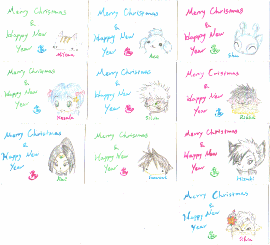 Merry Christmas
&
Happy New
Year
Merry Christmas
&
Happy New
Year
Merry Christmas
&
Happy New
Year
Merry Christmas
&
Happy New
Year
Merry Christmas
&
Happy New
Year
Merry Christmas
&
Happy New
Year
Merry Christmas
&
Happy New
Year
Merry Christmas
&
Happy New
Year
Merry Christmas
&
Happy New
Year
Merry Christmas
&
Happy New
Year